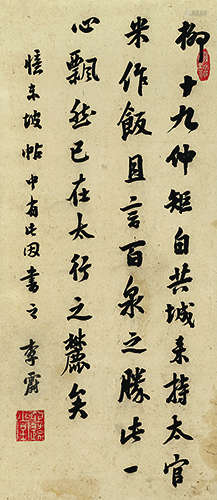 柳十九仲矩自共城来持太官
米作飯且言百泉之勝此一
心飄然已在太行之麓矣
憶東坡帖中有此因書之 李霨